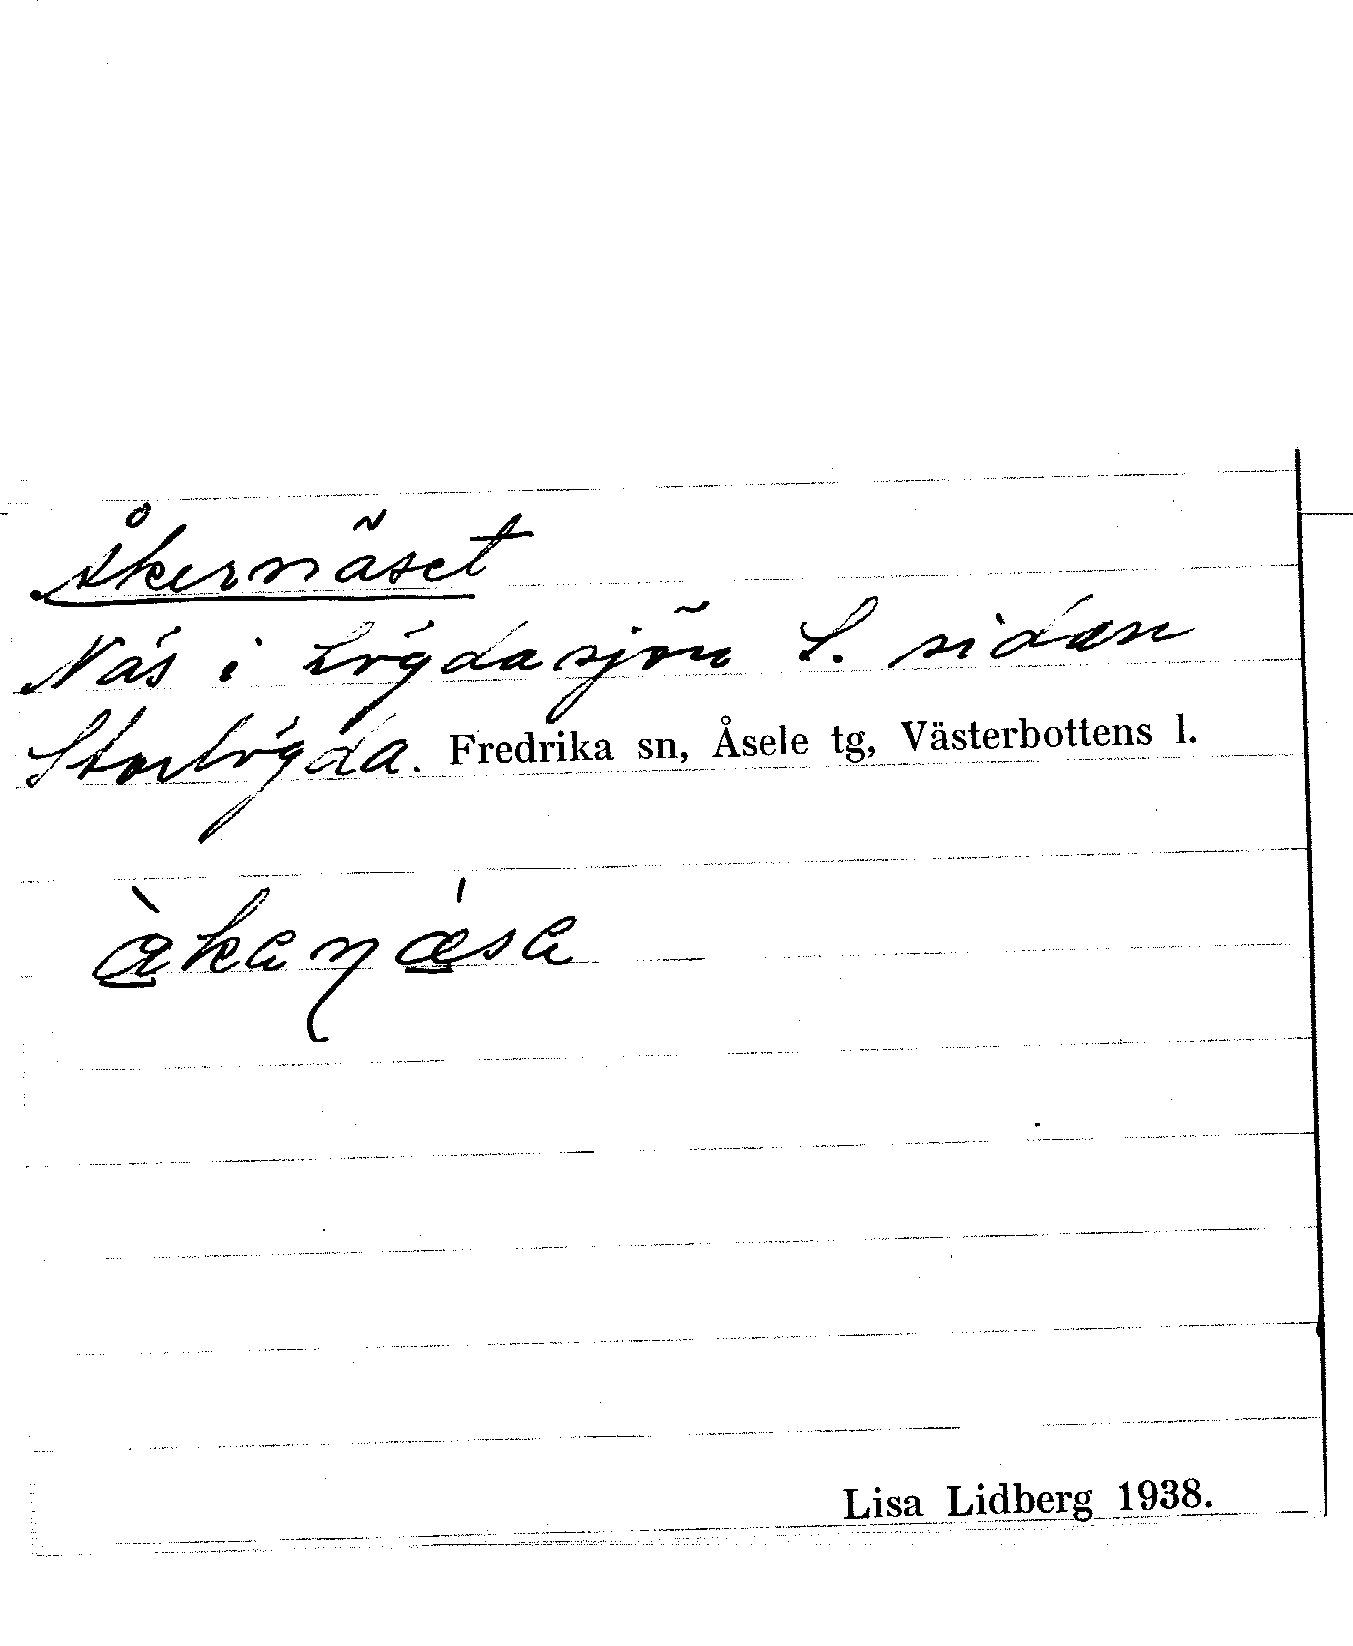 Åkernäset
Näs i Lögdasjön S. sidan
Storlögda. Fredrika sn, Åsele tg, Västerbottens l.
Lisa Lidberg 1938.